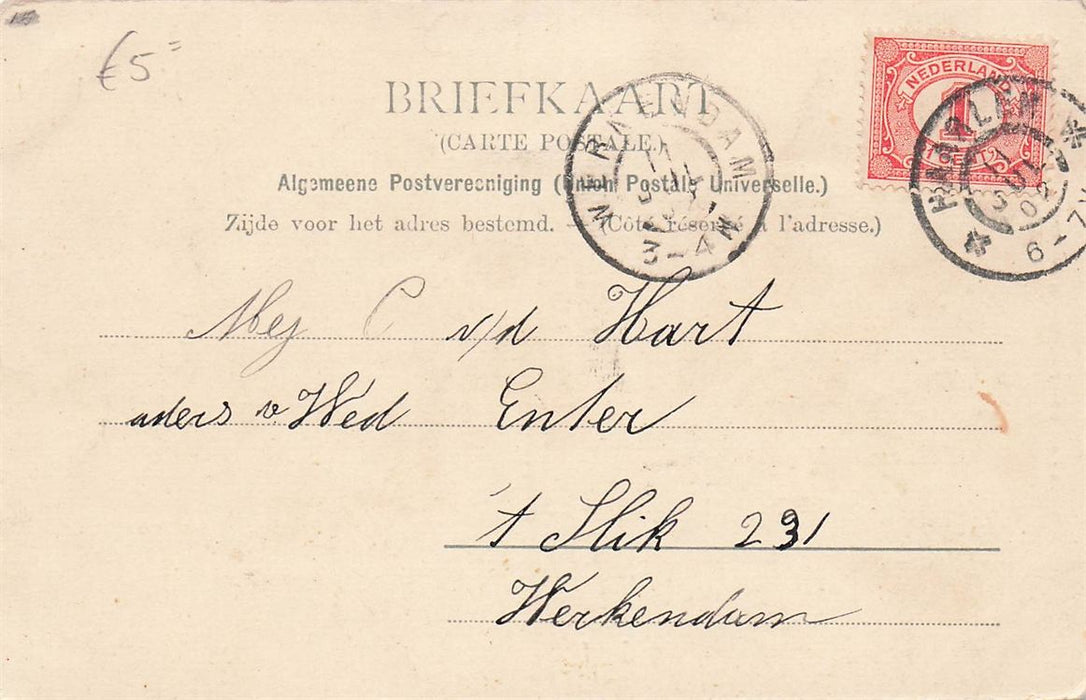 €5=
BRIEFKAART
(CARTE POSTALE.)
Algemeene Postvereeniging (Union Postale Universelle.)
Zijde voor het adres bestemd. — (Côté réservé à l'adresse.)
NEDERLAND
1
CENT
HAARLEM
JUL
6-7
WERKENDAM
3-4
Mej C v/d Hart
aders v Wed Enter
't Slik 231
Werkendam